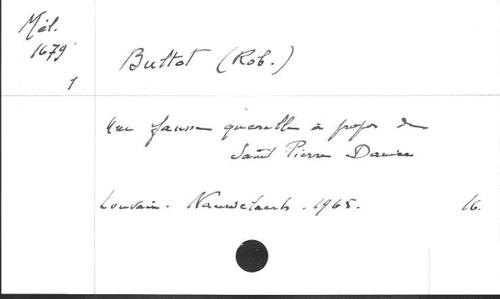 Mél.
1679
1
Bultot (Rob.)
Une fausse querelle à propos de
Saint Pierre Damien
Louvain. Nauwelaerts. 1965. 16.